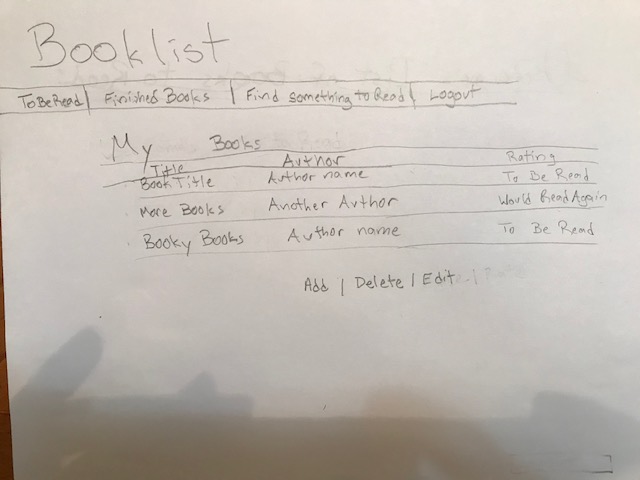 Booklist
To Be Read | Finished Books | Find something to Read | Logout
My Books
Title Author Rating
Book Title Author name To Be Read
More Books Another Author Would Read Again
Booky Books Author name To Be Read
Add | Delete | Edit